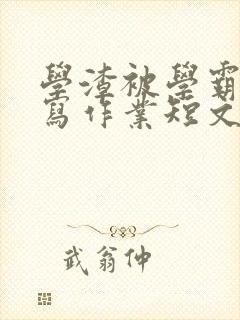 學渣被學霸
寫作業短文
武翁仲